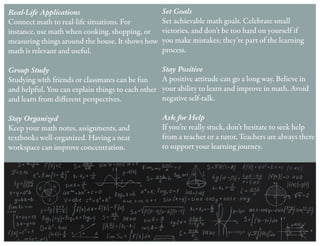 Real-Life Applications
Connect math to real-life situations. For
instance, use math when cooking, shopping, or
measuring things around the house. It shows how
math is relevant and useful.
Group Study
Studying with friends or classmates can be fun
and helpful. You can explain things to each other
and learn from different perspectives.
Stay Organized
Keep your math notes, assignments, and
textbooks well-organized. Having a neat
workspace can improve concentration.
Set Goals
Set achievable math goals. Celebrate small
victories, and don't be too hard on yourself if
you make mistakes; they're part of the learning
process.
Stay Positive
A positive attitude can go a long way. Believe in
your ability to learn and improve in math. Avoid
negative self-talk.
Ask for Help
If you're really stuck, don't hesitate to seek help
from a teacher or a tutor. Teachers are always there
to support your learning journey.